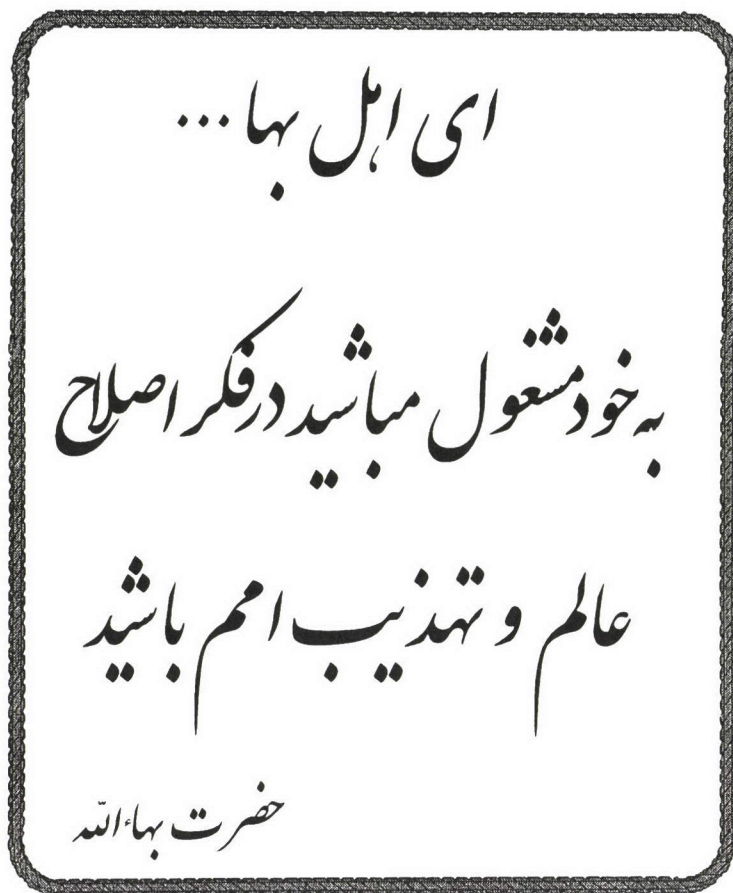 ای اهل بها...
به خود مشغول مباشید در فکر اصلاح
عالم و تهذیب امم باشید
حضرت بهاءالله